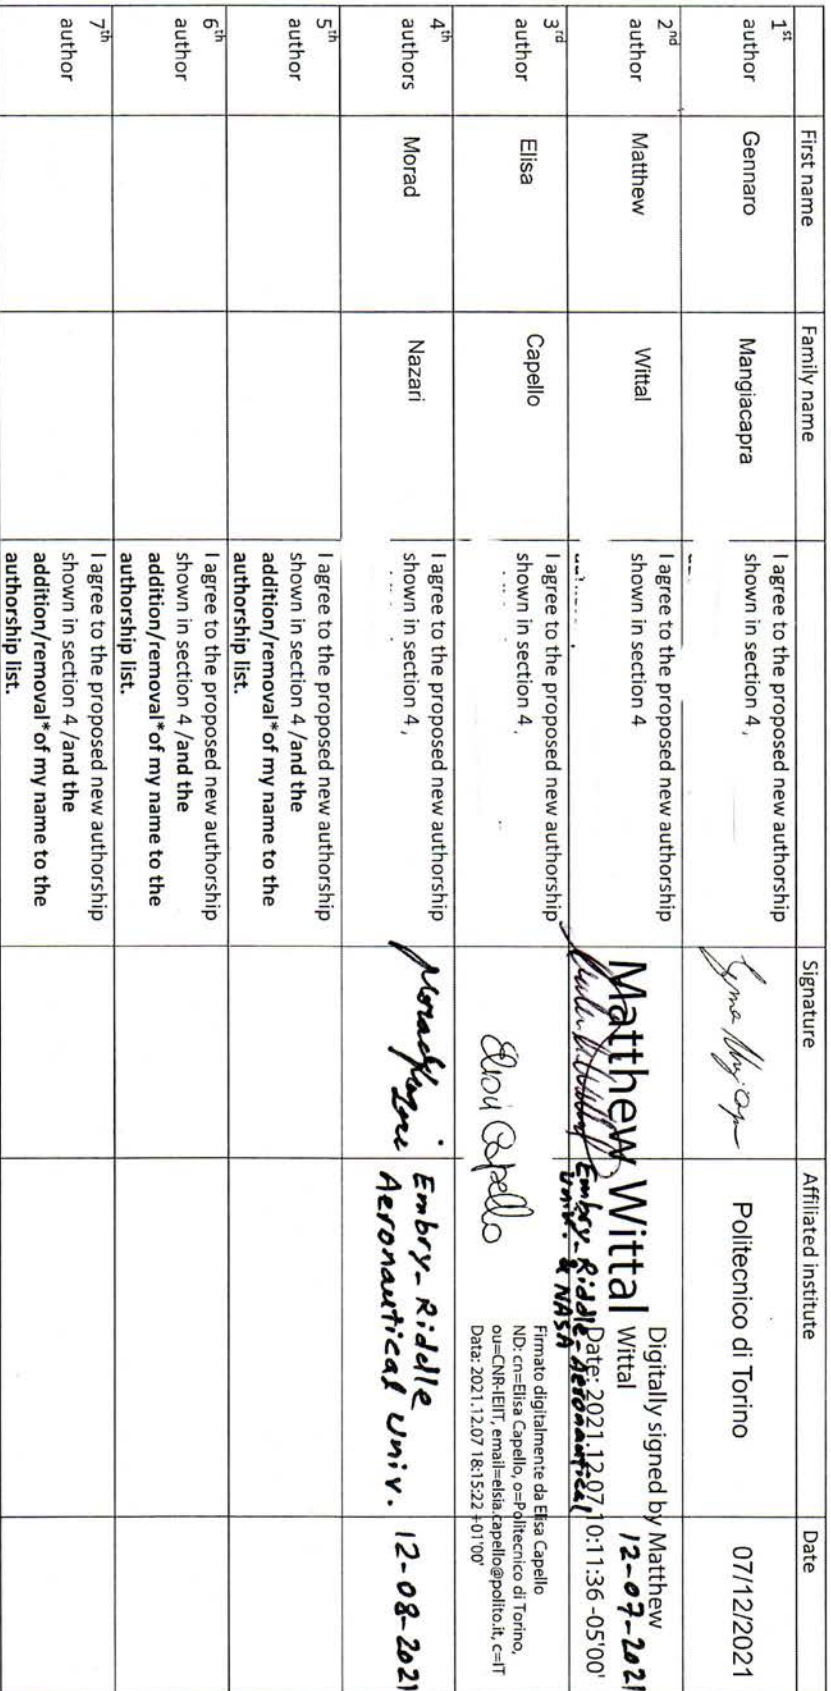 First name Family name Signature Affiliated institute Date
1st author Gennaro Mangiacapra I agree to the proposed new authorship
shown in section 4, Politecnico di Torino 07/12/2021
2nd author Matthew Wittal I agree to the proposed new authorship
shown in section 4
Matthew Wittal
Digitally signed by Matthew
Wittal
Date: 2021.12.07 10:11:36 -05'00'
Embry-Riddle-Aeronautical
Univ. & NASA
12-07-2021
3rd author Elisa Capello I agree to the proposed new authorship
shown in section 4,
Elisa Capello
Firmato digitalmente da Elisa Capello
ND: cn=Elisa Capello, o=Politecnico di Torino,
ou=CNR-IEIIT, email=elsia.capello@polito.it, c=IT
Data: 2021.12.07 18:15:22 +01'00'
4th authors Morad Nazari I agree to the proposed new authorship
shown in section 4,
Morad Nazari
Embry-Riddle
Aeronautical Univ.
12-08-2021
5th author I agree to the proposed new authorship
shown in section 4 /and the
addition/removal*of my name to the
authorship list.
6th author I agree to the proposed new authorship
shown in section 4 /and the
addition/removal*of my name to the
authorship list.
7th author I agree to the proposed new authorship
shown in section 4 /and the
addition/removal*of my name to the
authorship list.